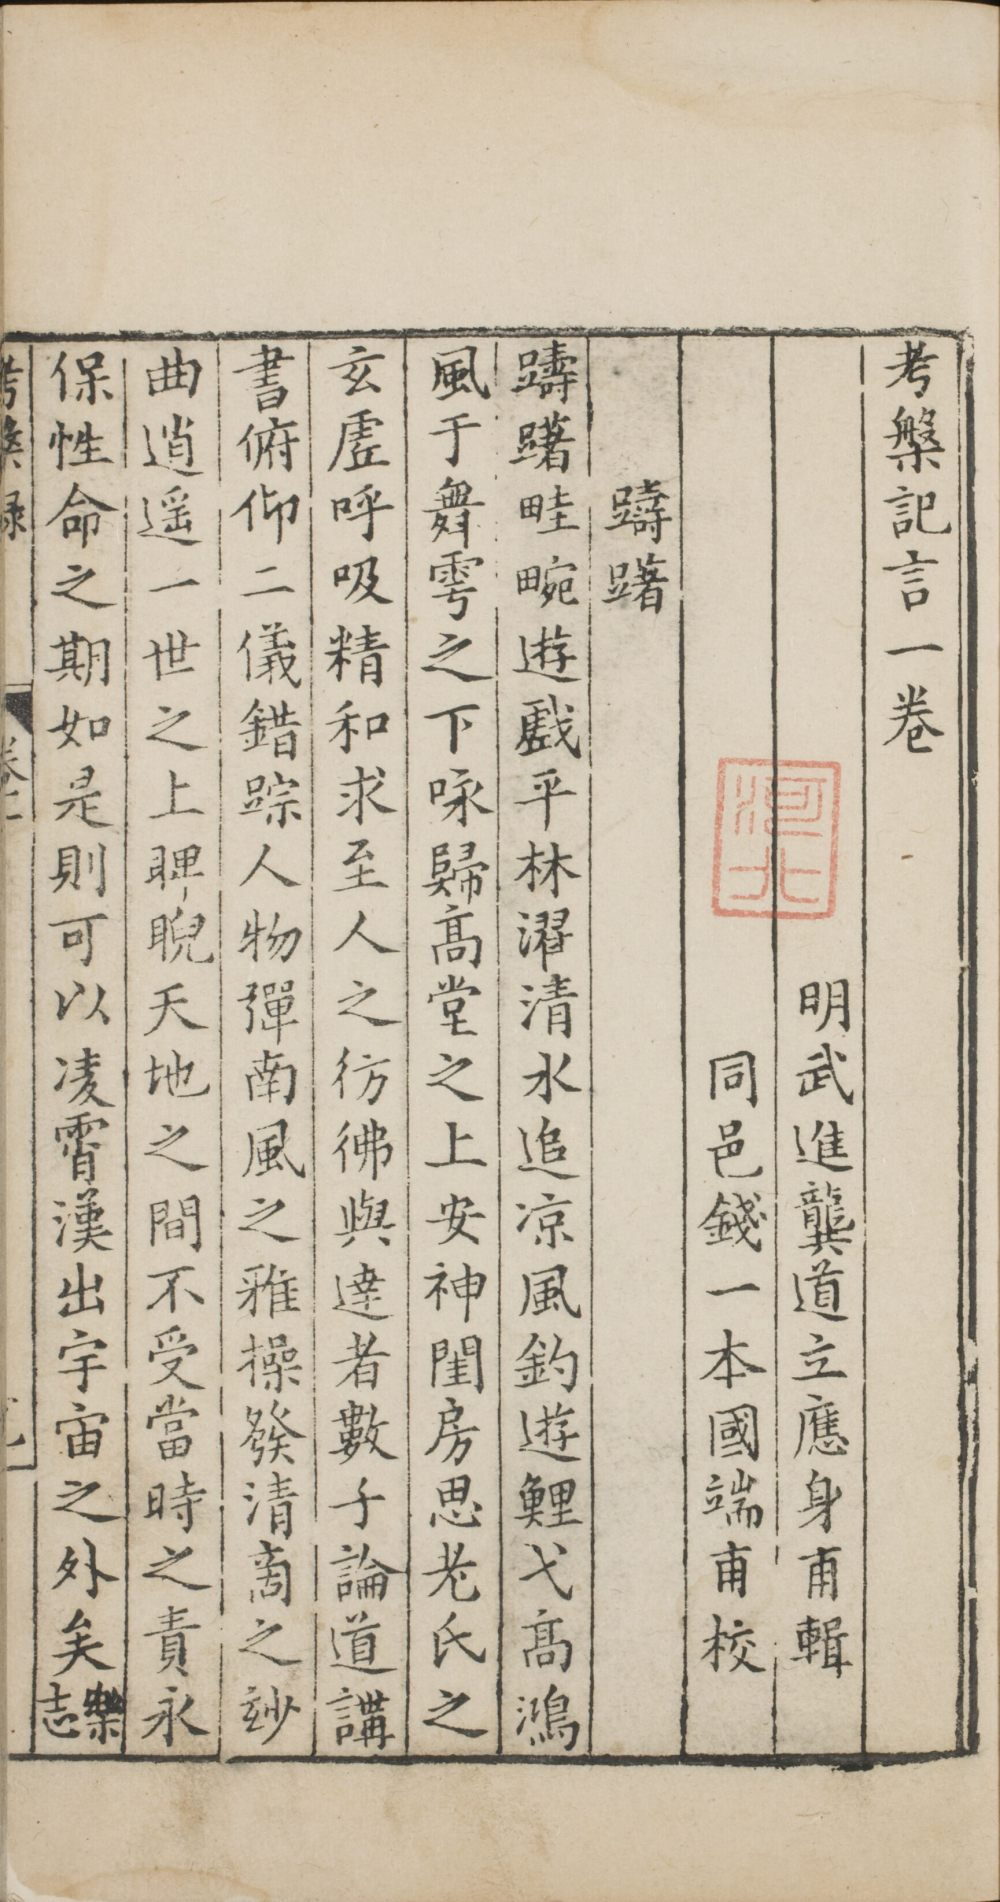 考槃記言一卷
明武進龔道立應身甫輯
同邑錢一本國端甫校
河北
躊躇
躊躇畦畹遊戲平林濯清水追凉風釣遊鯉弋高鴻
風于舞雩之下咏歸高堂之上安神閨房思老氏之
玄虛呼吸精和求至人之彷彿與達者數子論道講
書俯仰二儀錯踪人物彈南風之雅操發清商之玅
曲逍遥一世之上睥睨天地之間不受當時之責永
保性命之期如是則可以凌霄漢出宇宙之外矣樂志
考槃錄
卷上